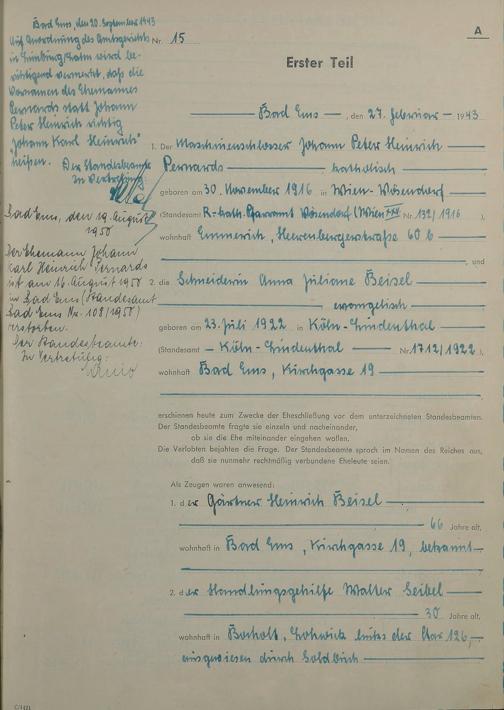 Bad Ems, den 20. September 1943
Auf Anordnung des Amtsgerichts
in Limburg/Lahn wird be-
richtigend vermerkt, daß die
Vornamen des Ehemannes
Pernards statt Johann
Peter Heinrich richtig
"Johann Karl Heinrich"
heißen. Der Standesbeamte
In Vertretung:
Bad Ems, den 19. August
1958
Der Ehemann Johann
Karl Heinrich Pernards
ist am 16. August 1958
in Bad Ems (Standesamt
Bad Ems Nr. 108/1958)
verstorben.
Der Standesbeamte:
In Vertretung:
A
Nr. 15
Erster Teil
Bad Ems, den 27. Februar 1943
1. Der Maschinenschlosser Johann Peter Heinrich
Pernards katholisch
geboren am 30. November 1916 in Wien-Vösendorf
(Standesamt R.-kath. Pfarramt Vösendorf (Wien Nr. 132/1916)
wohnhaft Emmerich, Heerenbergerstraße 60 b
, und
2. die Schneiderin Anna Juliane Beisel
evangelisch
geboren am 23. Juli 1922 in Köln-Lindenthal
(Standesamt Köln-Lindenthal Nr. 1712/1922)
wohnhaft Bad Ems, Kirchgasse 19
erschienen heute zum Zwecke der Eheschließung vor dem unterzeichneten Standesbeamten.
Der Standesbeamte fragte sie einzeln und nacheinander,
ob sie die Ehe miteinander eingehen wollen.
Die Verlobten bejahten die Frage. Der Standesbeamte sprach im Namen des Reiches aus,
daß sie nunmehr rechtmäßig verbundene Eheleute seien.
Als Zeugen waren anwesend:
1. der Gärtner Heinrich Beisel
66 Jahre alt,
wohnhaft in Bad Ems, Kirchgasse 19, bekannt
2. der Handlungsgehilfe Walter Seibel
30 Jahre alt,
wohnhaft in Bocholt, links der Aa 126,
ausgewiesen durch Soldbuch